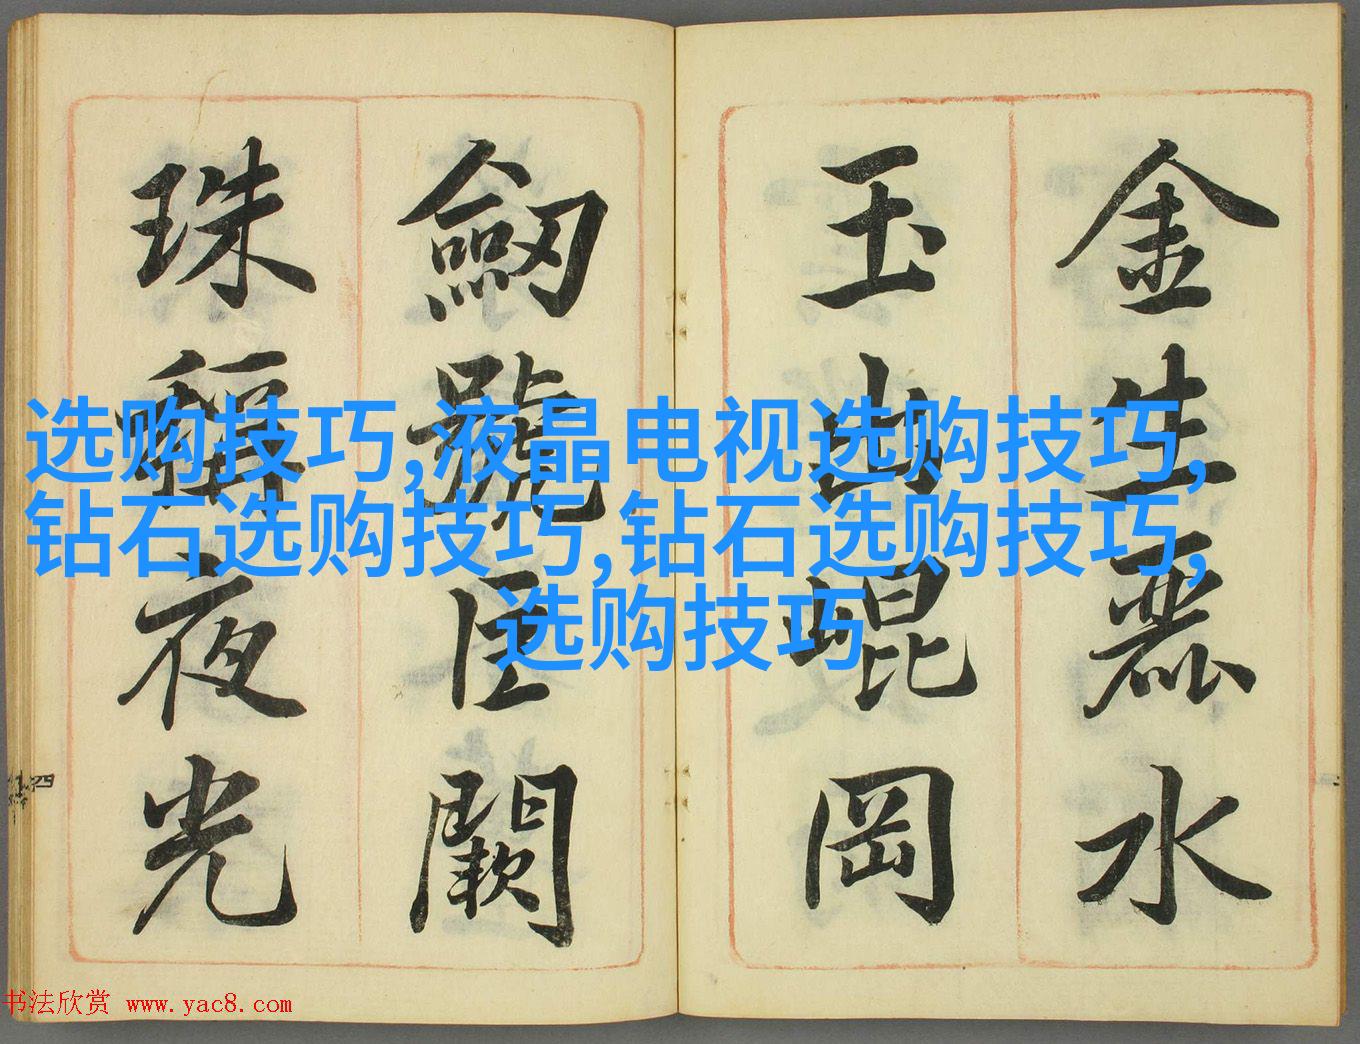 金生麗水
玉出崐岡
劒號巨闕
珠稱夜光
选购技巧,液晶电视选购技巧,
钻石选购技巧,钻石选购技巧,
选购技巧
四
书法欣赏 www.yac8.com